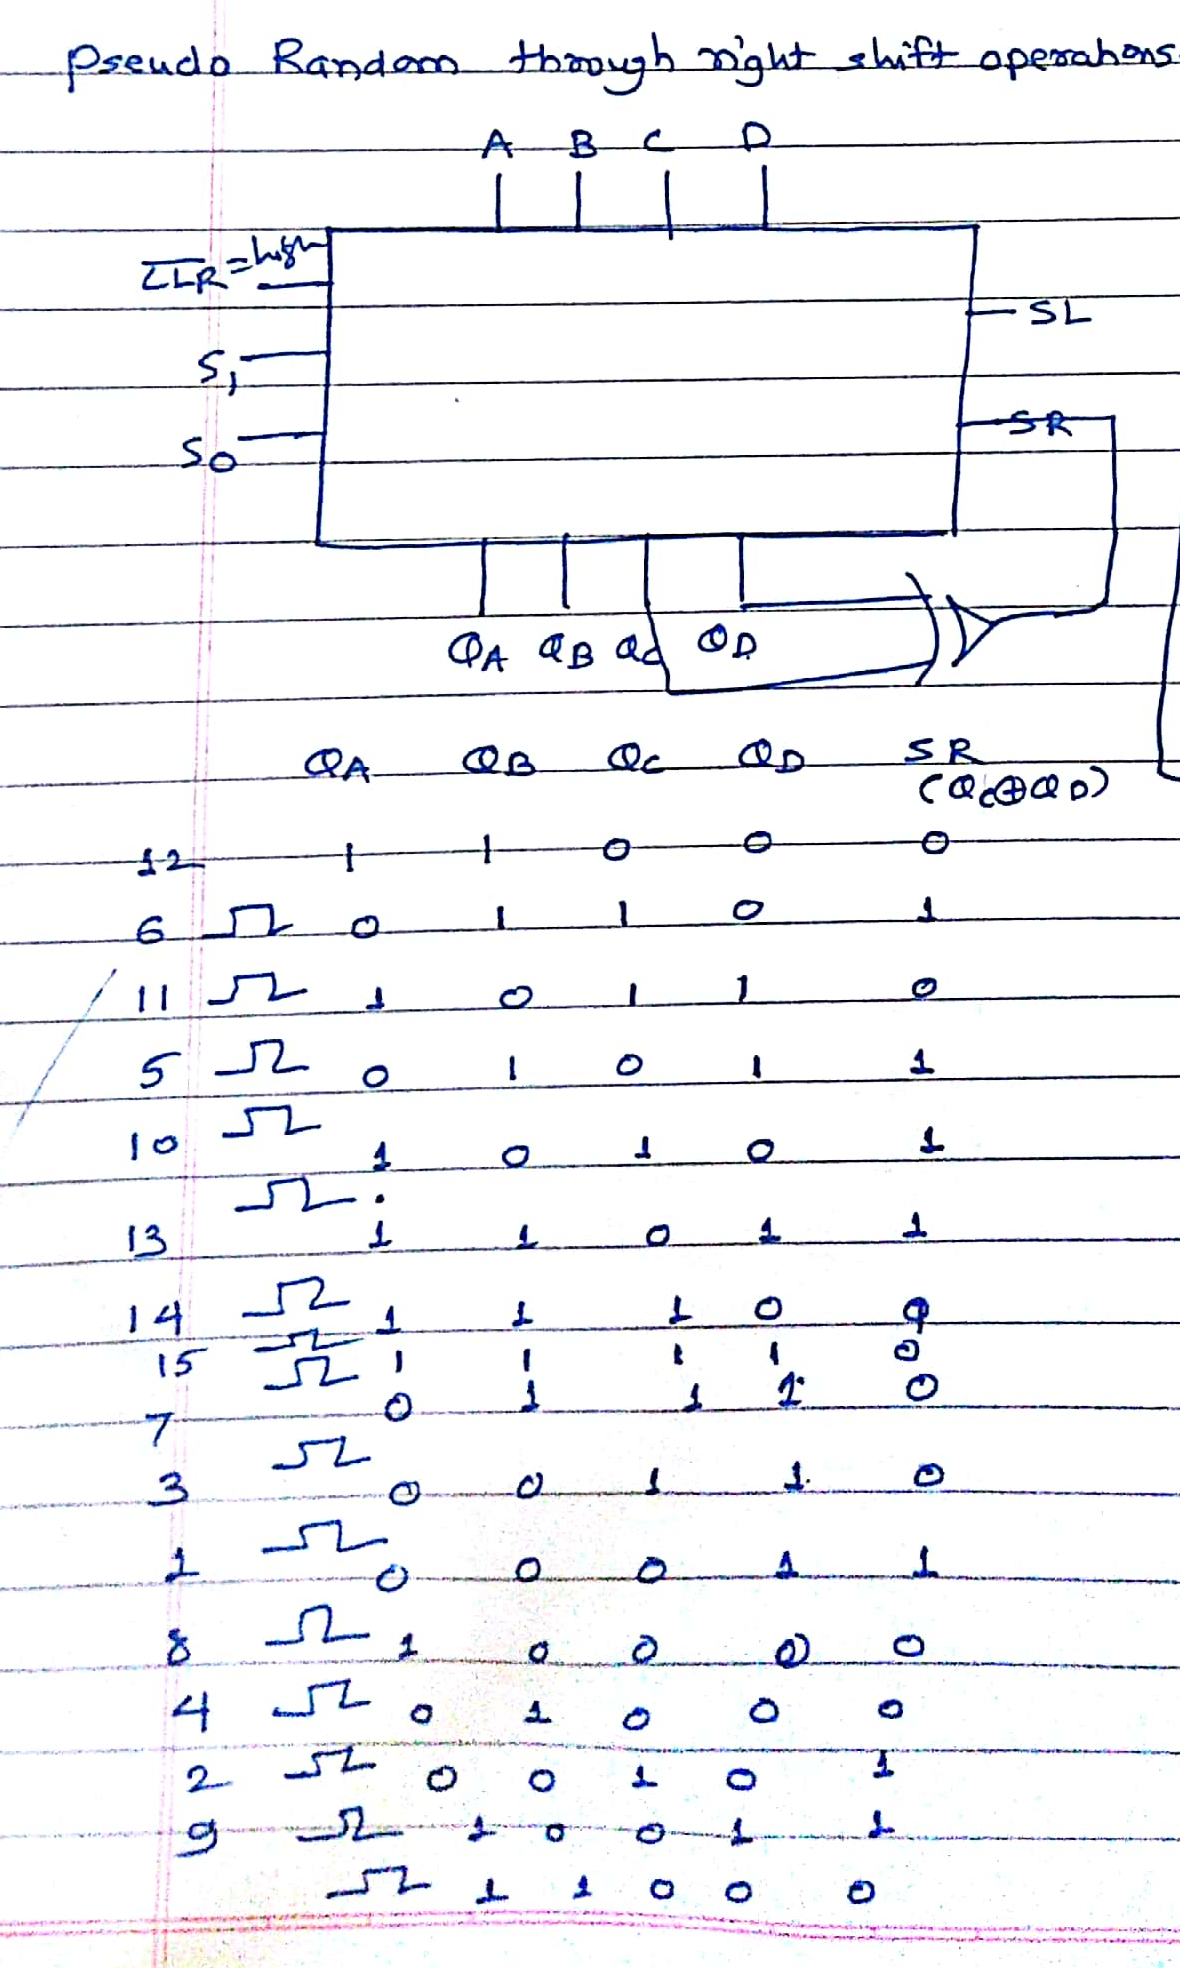 Pseudo Random through right shift operations
A B C D
CLR = high
SL
S1
SR
S0
QA QB QC QD
QA QB QC QD SR
(QC⊕QD)
12 1 1 0 0 0
6 0 1 1 0 1
11 1 0 1 1 0
5 0 1 0 1 1
10 1 0 1 0 1
13 1 1 0 1 1
14 1 1 1 0
15 1 1 1 1 0
7 0 1 1 1 0
3 0 0 1 1 0
1 0 0 0 1 1
8 1 0 0 0 0
4 0 1 0 0 0
2 0 0 1 0 1
9 1 0 0 1 1
1 1 0 0 0